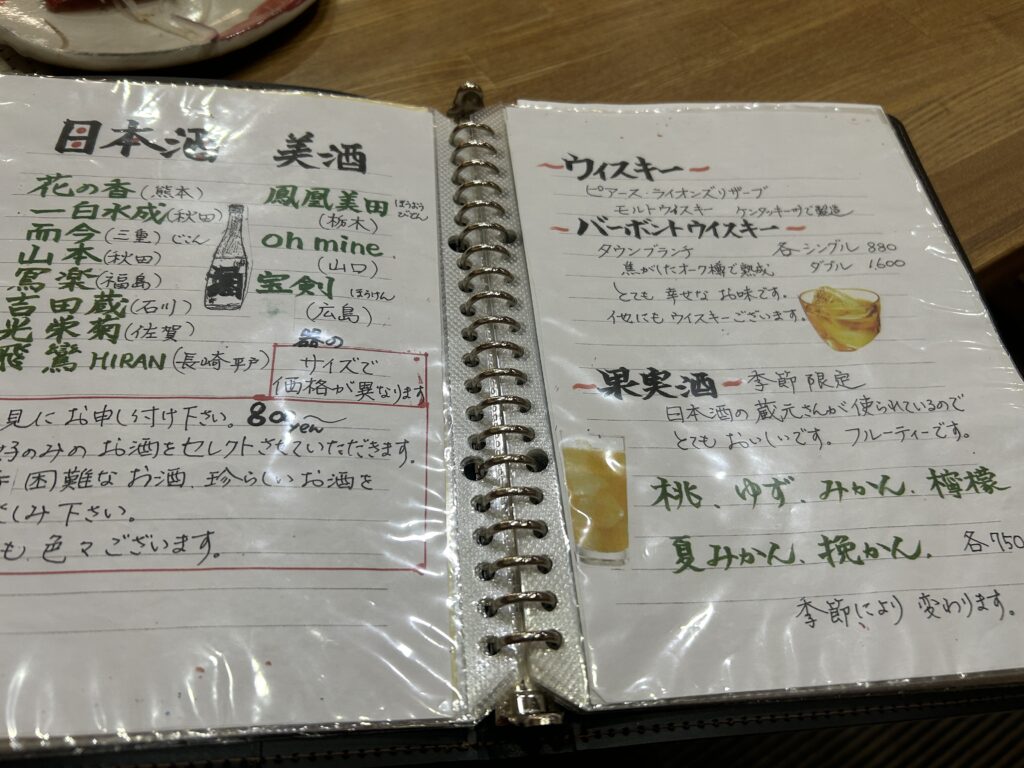 日本酒 美酒
花の香(熊本)
一白水成(秋田)
而今(三重)じこん
山本(秋田)
寫楽(福島)
吉田蔵(石川)
光栄菊(佐賀)
飛鸞 HIRAN (長崎平戸)
鳳凰美田 ほうおう びでん
(栃木)
oh mine
(山口)
宝剣 ほうけん
(広島)
器の
サイズで
価格が異なります
見にお申し付け下さい。 80 yen〜
好みのお酒をセレクトさせていただきます。
困難なお酒、珍らしいお酒を
しみ下さい。
も、色々ございます。
〜ウィスキー〜
ピアース・ライオンズリザーブ
モルトウィスキー ケンタッキー州で製造
〜バーボントウイスキー〜
タウンブランチ 各シングル 880
焦がしたオーク樽で熟成 ダブル 1.600
とても 幸せな お味です。
他にも ウイスキーございます。
〜果実酒〜季節限定
日本酒の蔵元さんが使られているので
とても おいしいです。フルーティーです。
桃、ゆず、みかん、檸檬
夏みかん、挽かん、 各750
季節により 変わります。